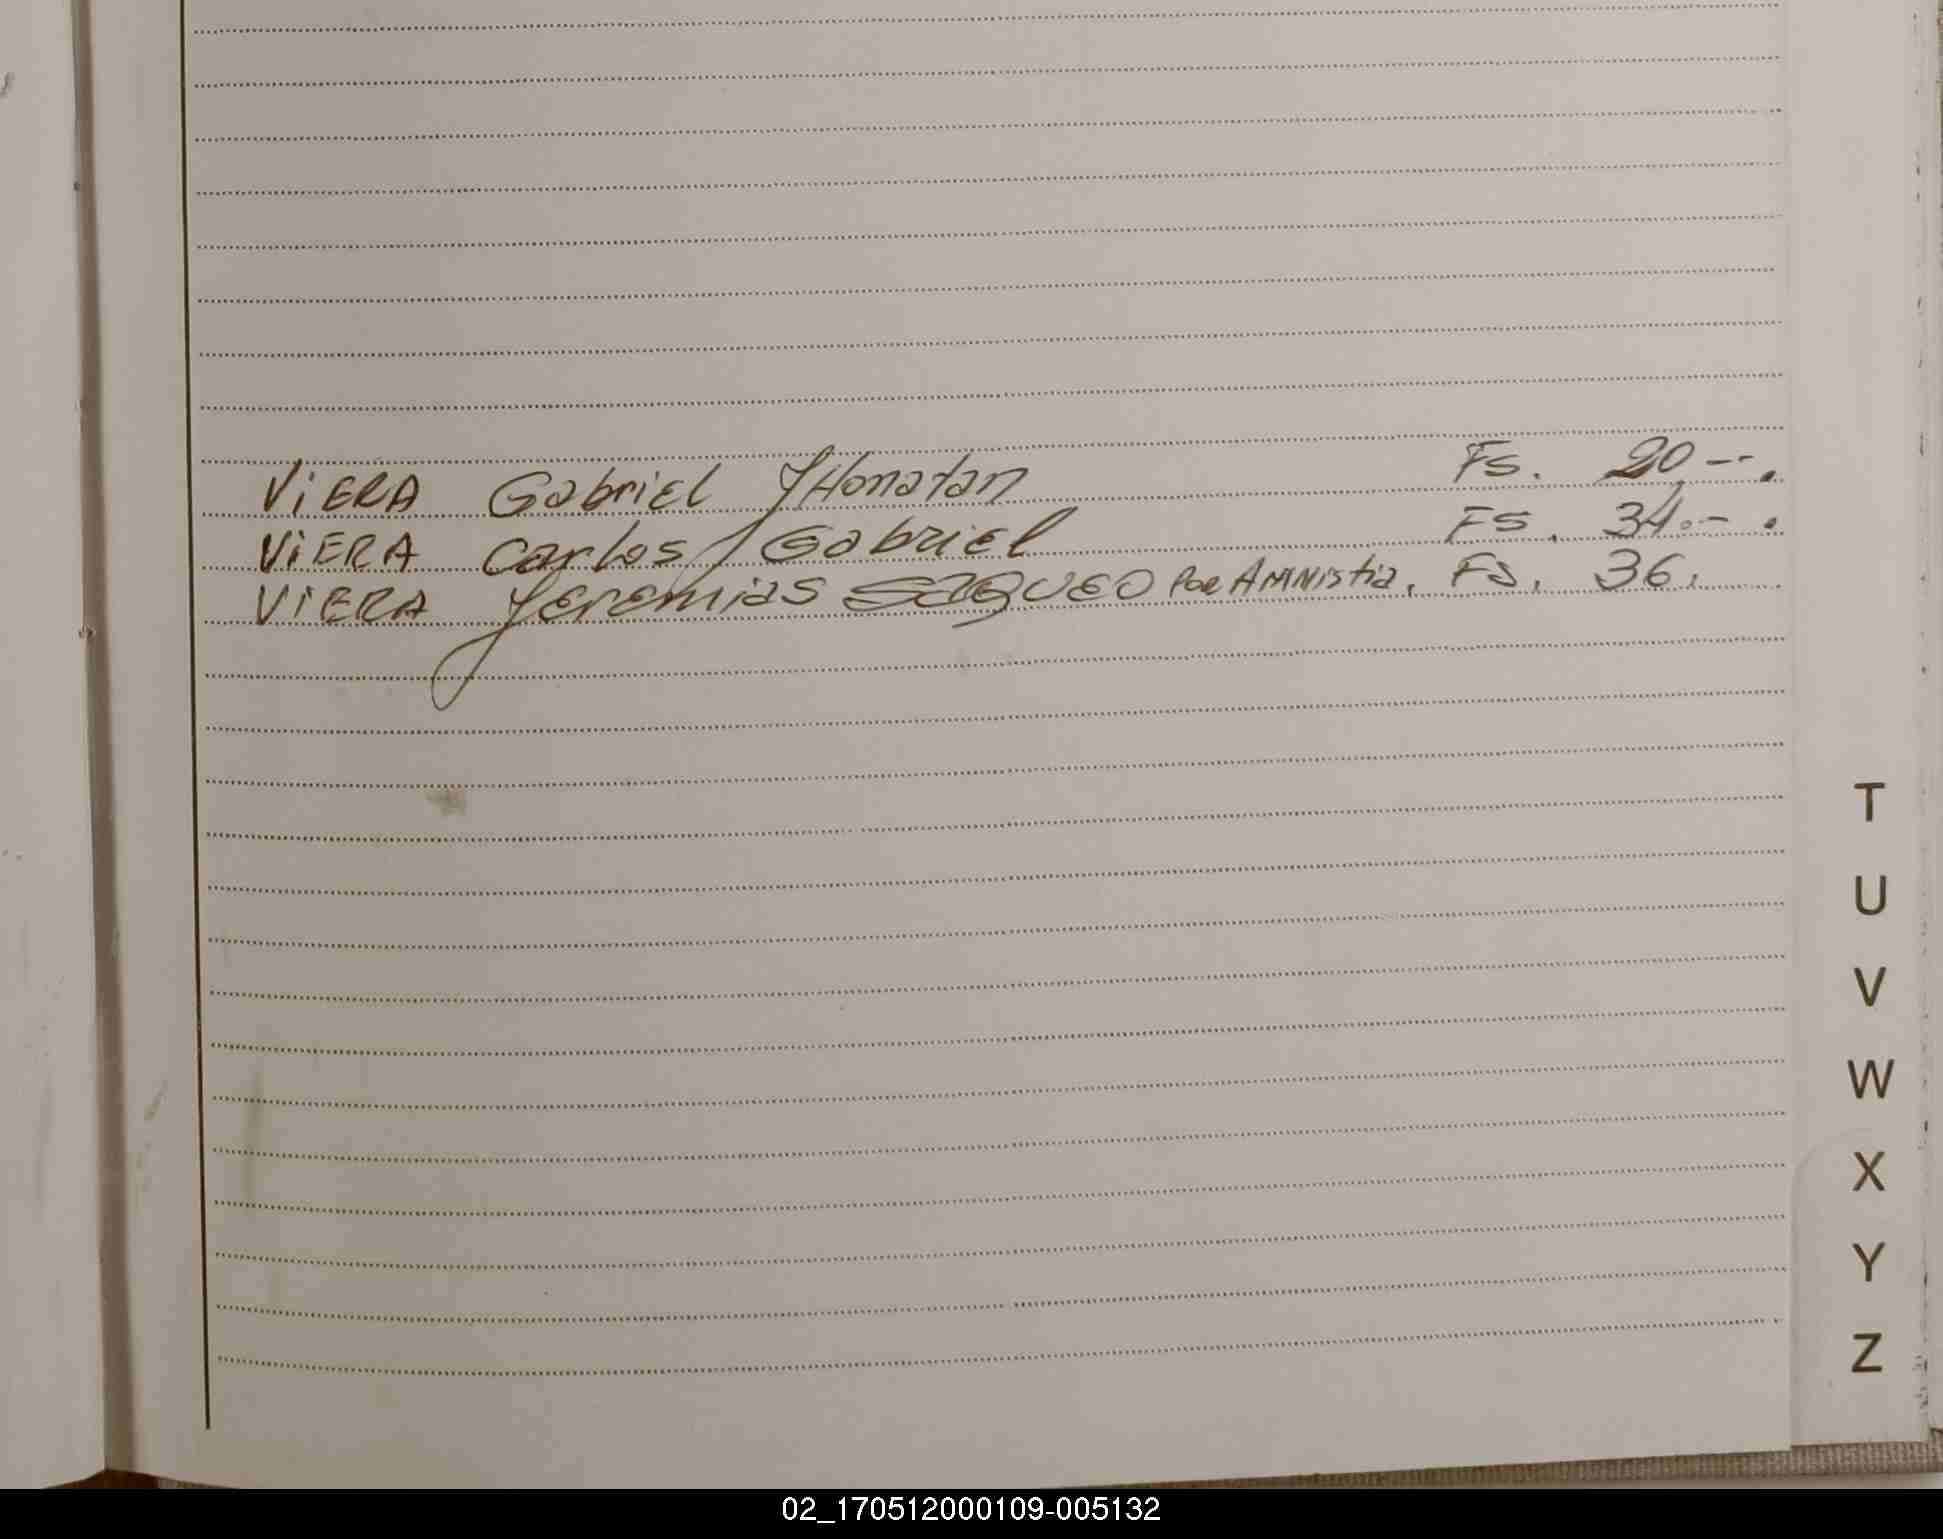 ViERA Gabriel JHonatan Fs. 20--.
ViERA Carlos Gabriel FS. 34.- .
ViERA Jeremias SAQUEO Por AMNistia. FS. 36.
T
U
V
W
X
Y
Z
02_170512000109-005132